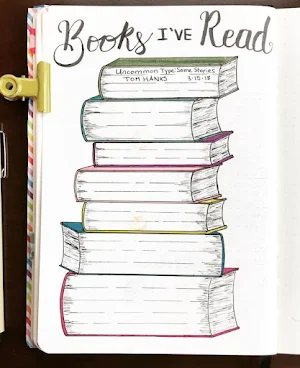 Books I'VE Read
Uncommon Type: Some Stories
TOM HANKS 3-15-18